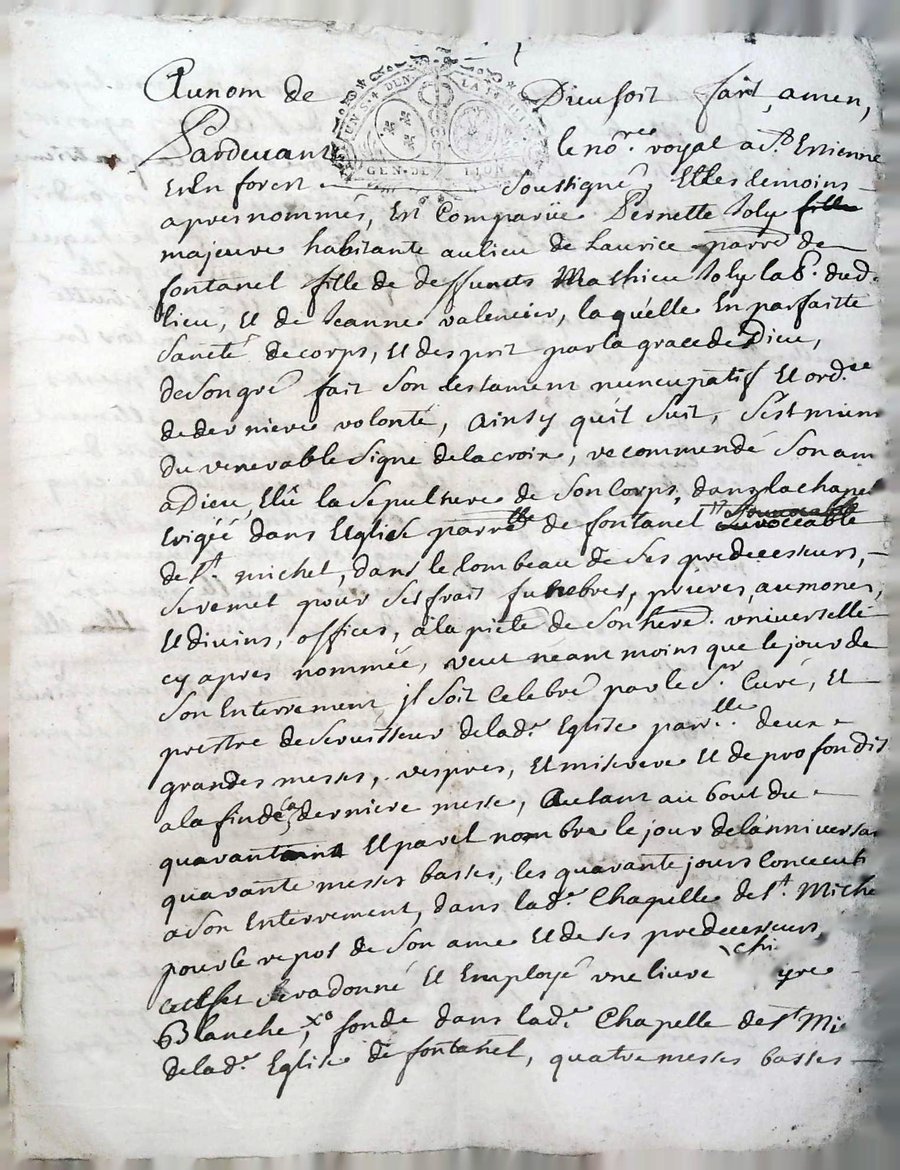 Aunom de Dieu soit fait, amen,
Pardevant le no.re royal a S.t Estienne
En forest soussigné, Et les temoins
apres nommés, En Comparüe Pernette Joly fille
majeure habitante au lieu de Laurice parre de
fontanel fille de deffunts Mathieu Joly la P. dud.
lieu, Et de Jeanne valencier, laquelle En parfaitte
Santé de corps, Et desprit par la grace de Dieu,
de Son gré fait Son testament nuncupatif Et ord.ce
de derniere volonté, Ainsy quil Suit, S'est munie
du venerable Signe de la croix, recommendé Son am
a Dieu, Elû la Sepulture de Son Corps, dans la chapel
Erigéé dans L'Eglise parr.lle de fontanel
de S.t michel, dans le tombeau de Ses predecesseurs,
Se remet pour Ses frait funebres, prieres, aumones,
Et divins, offices, a la pieté de Son here. universelle
cy apres nommée, veut neant moins que le jour de
Son Enterrement jl Soit Celebré par le S.r Curé, Et
prestre de Servisseur de lad.e Eglise parr.lle deux
grandes messes, vespres, Et miserere Et de profondis
a la fin de la derniere messe, Autant au bout du
quarantain Et pareil nombre le jour de l'anniversai
quarante messes basses, les quarante jours Concecuti
a Son Enterrement, dans lad.e Chapelle de S.t Miche
pour le repos de Son ame Et de Ses predecesseurs
Sera donné Et Employé une livre
Blanche, fonde dans lad.e Chapelle de S.t Mi
de lad.e Eglise de fontanel, quatre messes basses